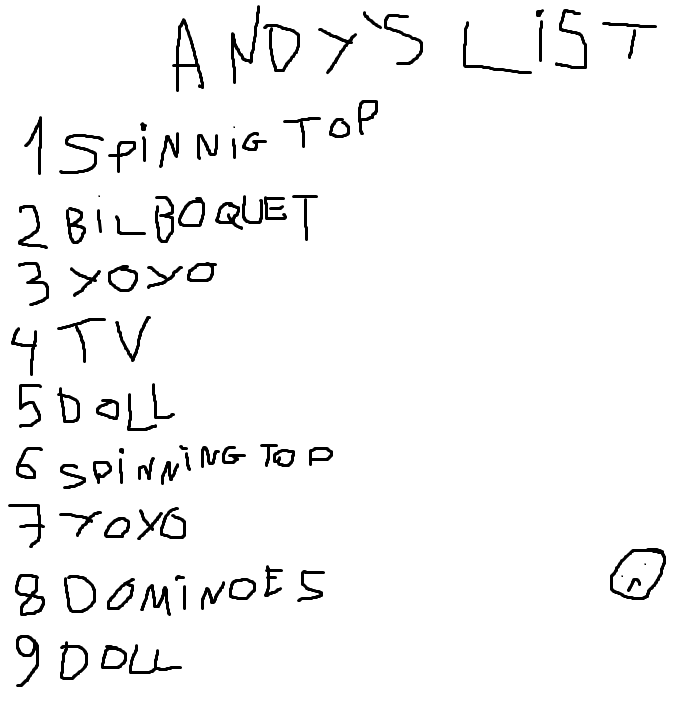 ANDY'S LIST
1 SPINNIG TOP
2 BILBOQUET
3 YOYO
4 TV
5 DOLL
6 SPINNING TOP
7 YOYO
8 DOMINOES
9 DOLL